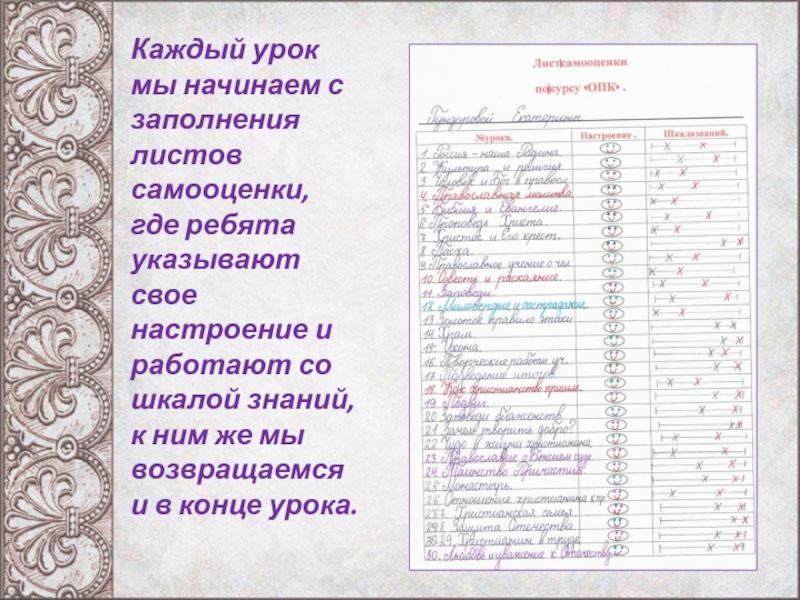 Каждый урок
мы начинаем с
заполнения
листов
самооценки,
где ребята
указывают
свое
настроение и
работают со
шкалой знаний,
к ним же мы
возвращаемся
и в конце урока.
Лист самооценки
по курсу «ОПК» .
Гундоровой Екатерины
№урока. Настроение . Шкалазнаний.
1. Россия – наша Родина.
2 Культура и религия.
3 Человек и Бог в правосл
4. Православная молитва.
5 Библия и Евангелие.
6 Проповедь Христа.
7 Христос и Его крест.
8 Пасха.
9 Православное учение о чел
10. Совесть и раскаяние.
11. Заповеди.
12. Милосердие и сострадание.
13. Золотое правило этики
14 Храм.
15. Икона.
16. Творческие работы уч.
17 Подведение итогов.
18. Как христианство пришло
19. Подвиг.
20 Заповеди блаженств
21. Зачем творить добро?
22 Чудо в жизни христианина
23. Православие о Божием суде.
24. Таинство Причастия
25 Монастырь.
26. Отношение христианина к пр.
27. Христианская семья.
28 Защита Отечества
29. Христианин в труде.
30. Любовь и уважение к Отечеству